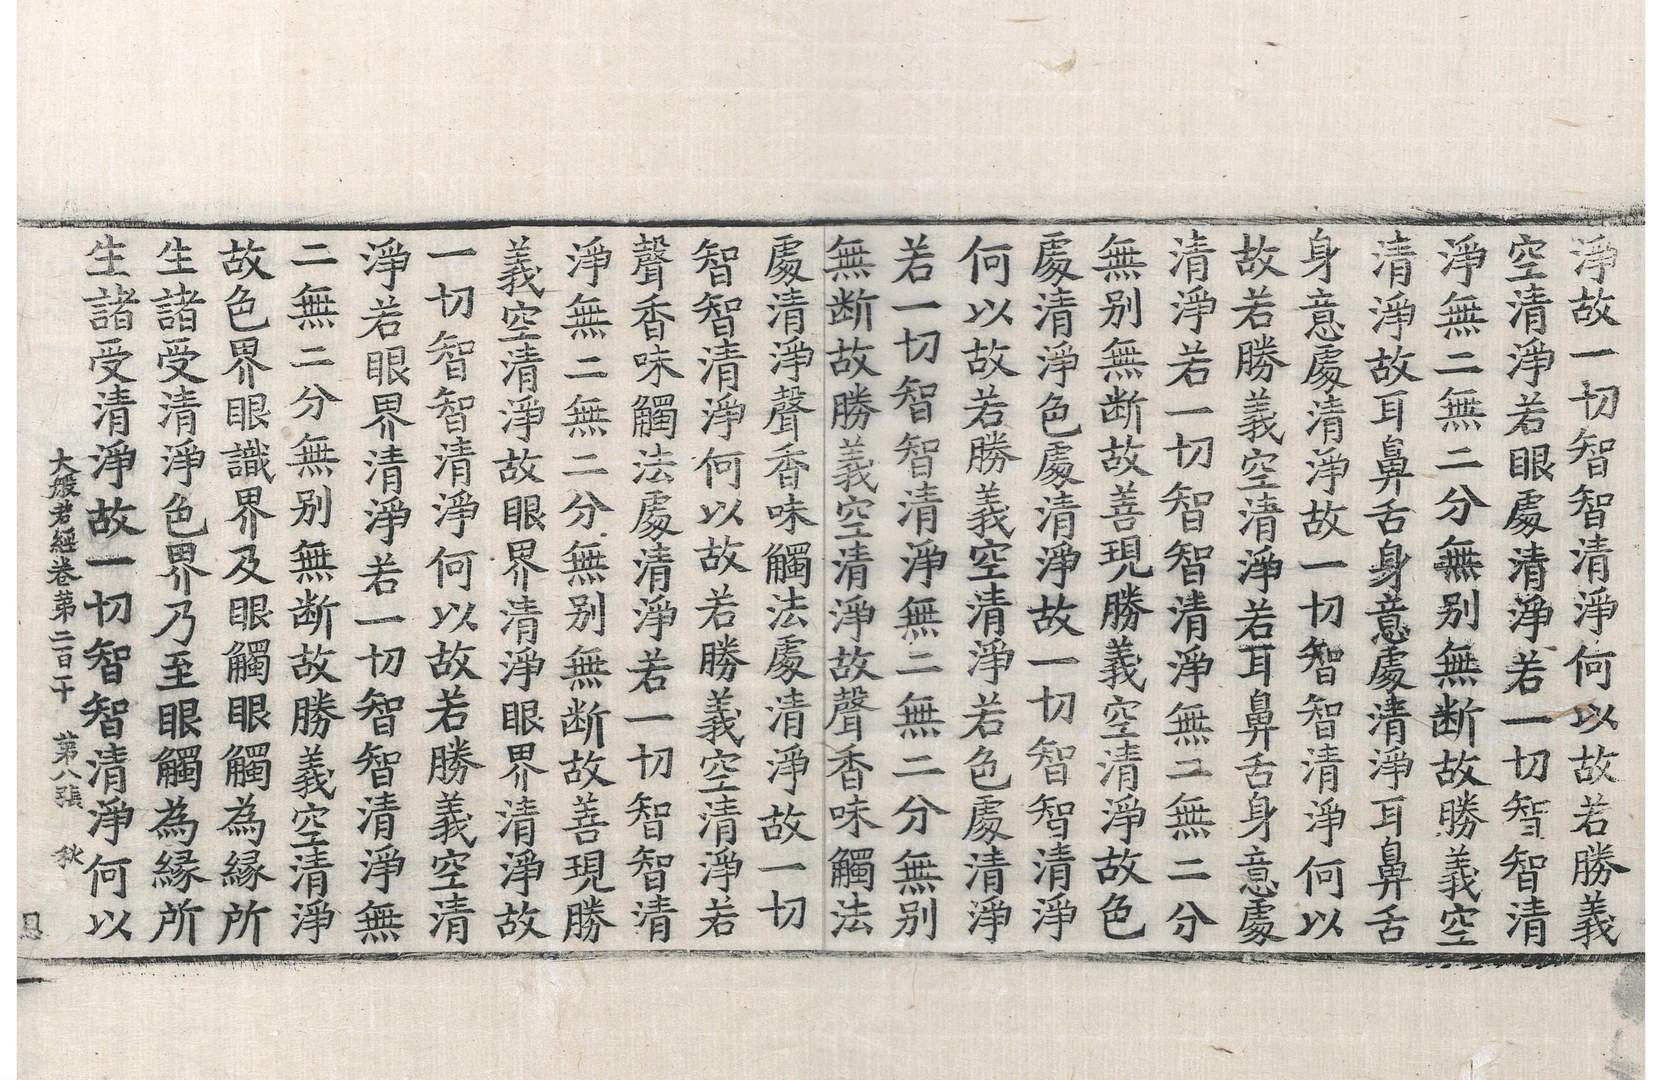 淨故一切智智清淨何以故若勝義
空清淨若眼處清淨若一切智智清
淨無二無二分無别無断故勝義空
清淨故耳鼻舌身意處清淨耳鼻舌
身意處清淨故一切智智清淨何以
故若勝義空清淨若耳鼻舌身意處
清淨若一切智智清淨無二無二分
無别無断故善現勝義空清淨故色
處清淨色處清淨故一切智智清淨
何以故若勝義空清淨若色處清淨
若一切智智清淨無二無二分無别
無断故勝義空清淨故聲香味觸法
處清淨聲香味觸法處清淨故一切
智智清淨何以故若勝義空清淨若
聲香味觸法處清淨若一切智智清
淨無二無二分無别無断故善現勝
義空清淨故眼界清淨眼界清淨故
一切智智清淨何以故若勝義空清
淨若眼界清淨若一切智智清淨無
二無二分無别無断故勝義空清淨
故色界眼識界及眼觸眼觸為縁所
生諸受清淨色界乃至眼觸為縁所
生諸受清淨故一切智智清淨何以
大般若經卷第二百十 第八張 秋